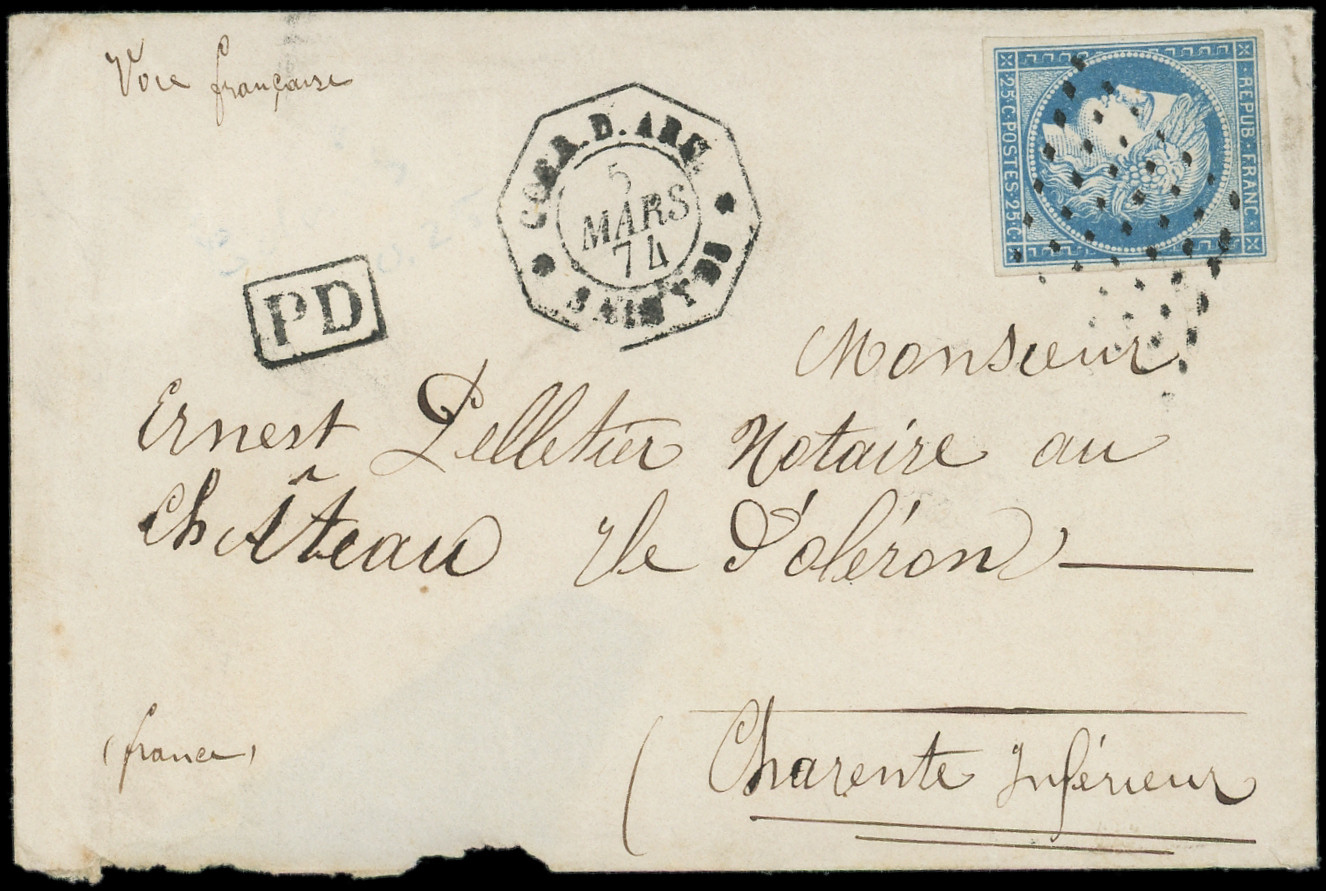 Voie française
COER. D. ARM.
5
MARS
74
REPUB · FRANC ·
25 C · POSTES · 25 C
PD
Monsieur
Ernest Pelletier Notaire au
Château Ile d'oléron
(france)
(Charente Inférieur